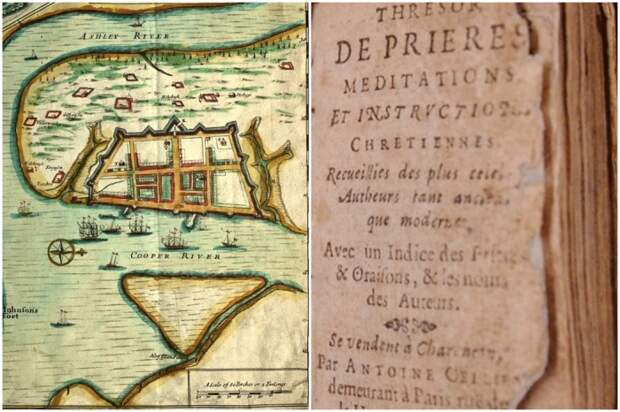 ASHLEY RIVER
COOPER RIVER
Johnsons
fort
A Scale of
THRESOR
DE PRIERES
MEDITATIONS
ET INSTRUCTIO
CHRETIENNES.
Recueillies des plus
Autheurs tant
que modernes,
Avec un Indice des
& Oraisons, & les noms
des Auteurs.
Se vendent à
Par ANTOINE
demeurant à Paris